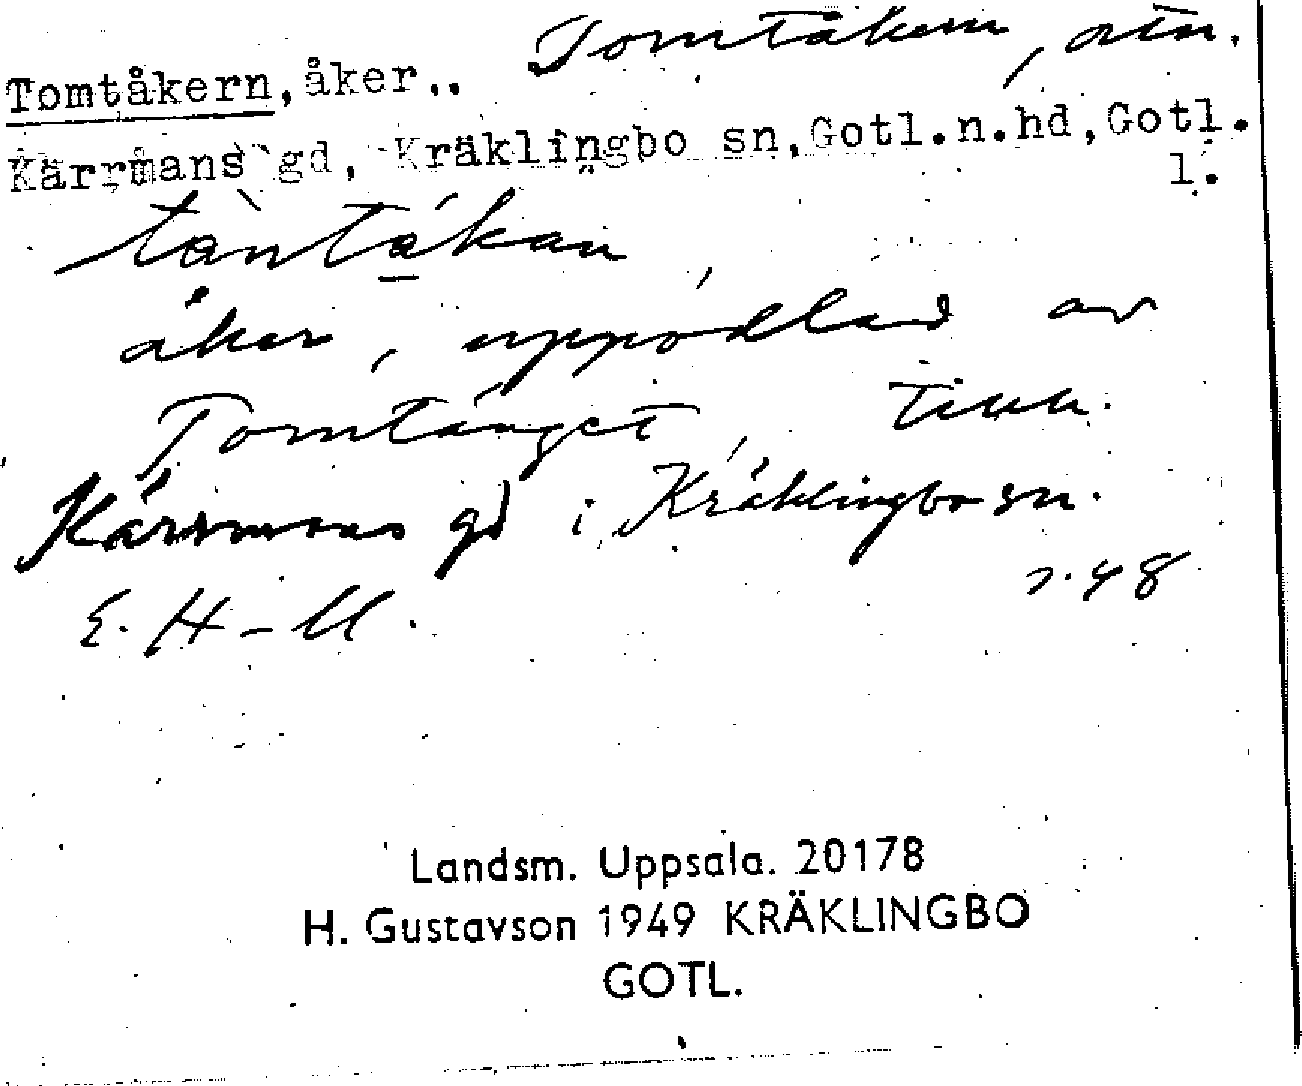 Tomtåkern, åtn.
Tomtåkern, åker..
Kärrmans gd, Kräklingbo sn, Gotl.n.hd, Gotl.
l.
tàntákan
åker, uppodlad av
Tomtänget, tillh.
Kärrmans gd i Kräklingbo sn.
E. H-M.
r. 48
Landsm. Uppsala. 20178
H. Gustavson 1949 KRÄKLINGBO
GOTL.